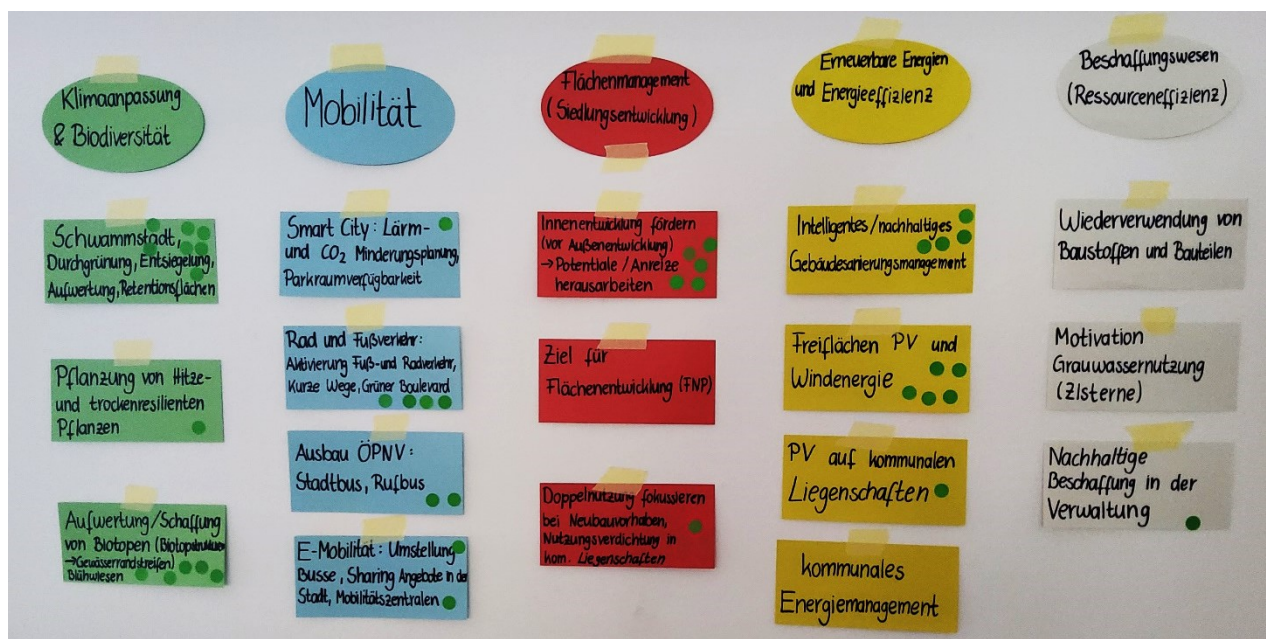 Klimaanpassung
& Biodiversität
Schwammstadt,
Durchgrünung, Entsiegelung,
Aufwertung, Retentionsflächen
Pflanzung von Hitze-
und trockenresilienten
Pflanzen
Aufwertung/Schaffung
von Biotopen (Biotopstrukturen
→Gewässerrandstreifen)
Blühwiesen
Mobilität
Smart City: Lärm-
und CO2 Minderungsplanung,
Parkraumverfügbarkeit
Rad und Fußverkehr:
Aktivierung Fuß- und Radverkehr,
Kurze Wege, Grüner Boulevard
Ausbau ÖPNV:
Stadtbus, Rufbus
E-Mobilität: Umstellung
Busse, Sharing Angebote in der
Stadt, Mobilitätszentralen
Flächenmanagement
(Siedlungsentwicklung)
Innenentwicklung fördern
(vor Außenentwicklung)
→ Potentiale / Anreize
herausarbeiten
Ziel für
Flächenentwicklung (FNP)
Doppelnutzung fokussieren
bei Neubauvorhaben,
Nutzungsverdichtung in
kom. Liegenschaften
Erneuerbare Energien
und Energieeffizienz
Intelligentes/nachhaltiges
Gebäudesanierungsmanagement
Freiflächen PV und
Windenergie
PV auf kommunalen
Liegenschaften
kommunales
Energiemanagement
Beschaffungswesen
(Ressourceneffizienz)
Wiederverwendung von
Baustoffen und Bauteilen
Motivation
Grauwassernutzung
(Zisterne)
Nachhaltige
Beschaffung in der
Verwaltung